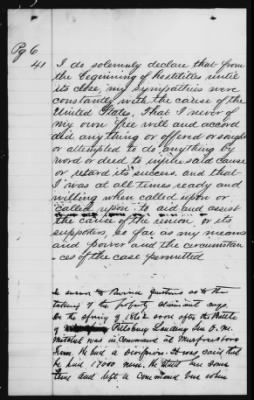 Pg 6
41 I do solemnly declare that from
the beginning of hostilities until
its close, my sympathies were
constantly with the cause of the
United States, That I never of
my own free will and accord
did any thing or offered or sought
or attempted to do anything by
word or deed to injure said cause
or retard its success. and that
I was at all times ready and
willing when called upon or
called upon to aid and assist
the cause of the union or its
supporters, so far as my means
and power and the circumstan
-ces of the case permitted
In answer to Questions as to the
taking of the property claimant says.
In the spring of 1862 soon after the Battle
of Pittsburg Landing Gen O. M.
Mitchel was in Command at Murfreesboro
Tenn. He had a Division. It was said that
he had 17000 men. He staid here some
time and left a command here when